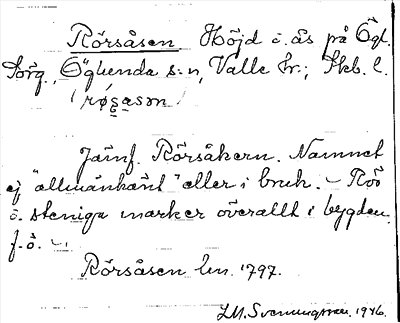 Rörsåsen Höjd o. ås på Ögl.
Torg, Öglunda s:n, Valle hr., Skb. l.
Jämf. Rörsåkern. Namnet
ej "allmänkänt" eller i bruk. – Rör
o. steniga marker överallt i bygden
f. ö. –
Rörsåsen lm. 1797.
L.M. Svenningsson. 1946.